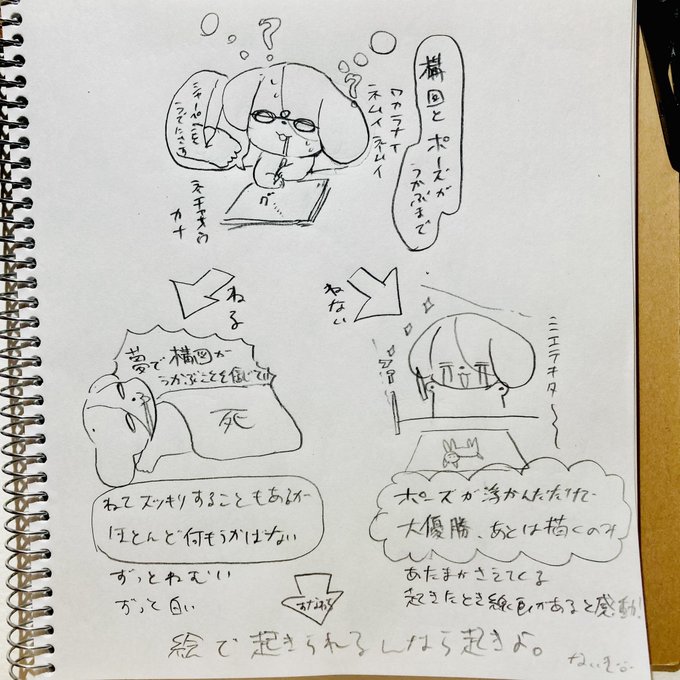 構図とポーズが
うかぶまで
ワカラナイ
ネムイネムイ
?
?
?
シャーペンを
カナ
ねる
ねない
夢で構図が
うかぶことを信じて!!
死
ミエテキタ〜
ねてスッキリすることもあるが
ほとんど何もうかばない
ずっとねむい
ずっと白い
ポーズが浮かんだだけで
大優勝、あとは描くのみ
あたまがさえてくる
起きたとき線画があると感動!
すなわち
絵で起きられるんなら起きよ。